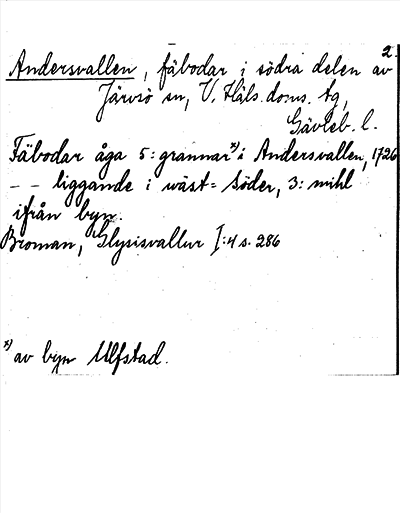 2.
Andersvallen, fäbodar i södra delen av
Järvsö sn, V. Häls. doms. tg,
Gävleb. l.
Fäbodar åga 5: grannar x) i Andersvallen, 1726
– – liggande i wäst= söder, 3: mihl
ifrån byn.
Broman, Glysisvallur I:4 s. 286
x) av byn Ulfstad.